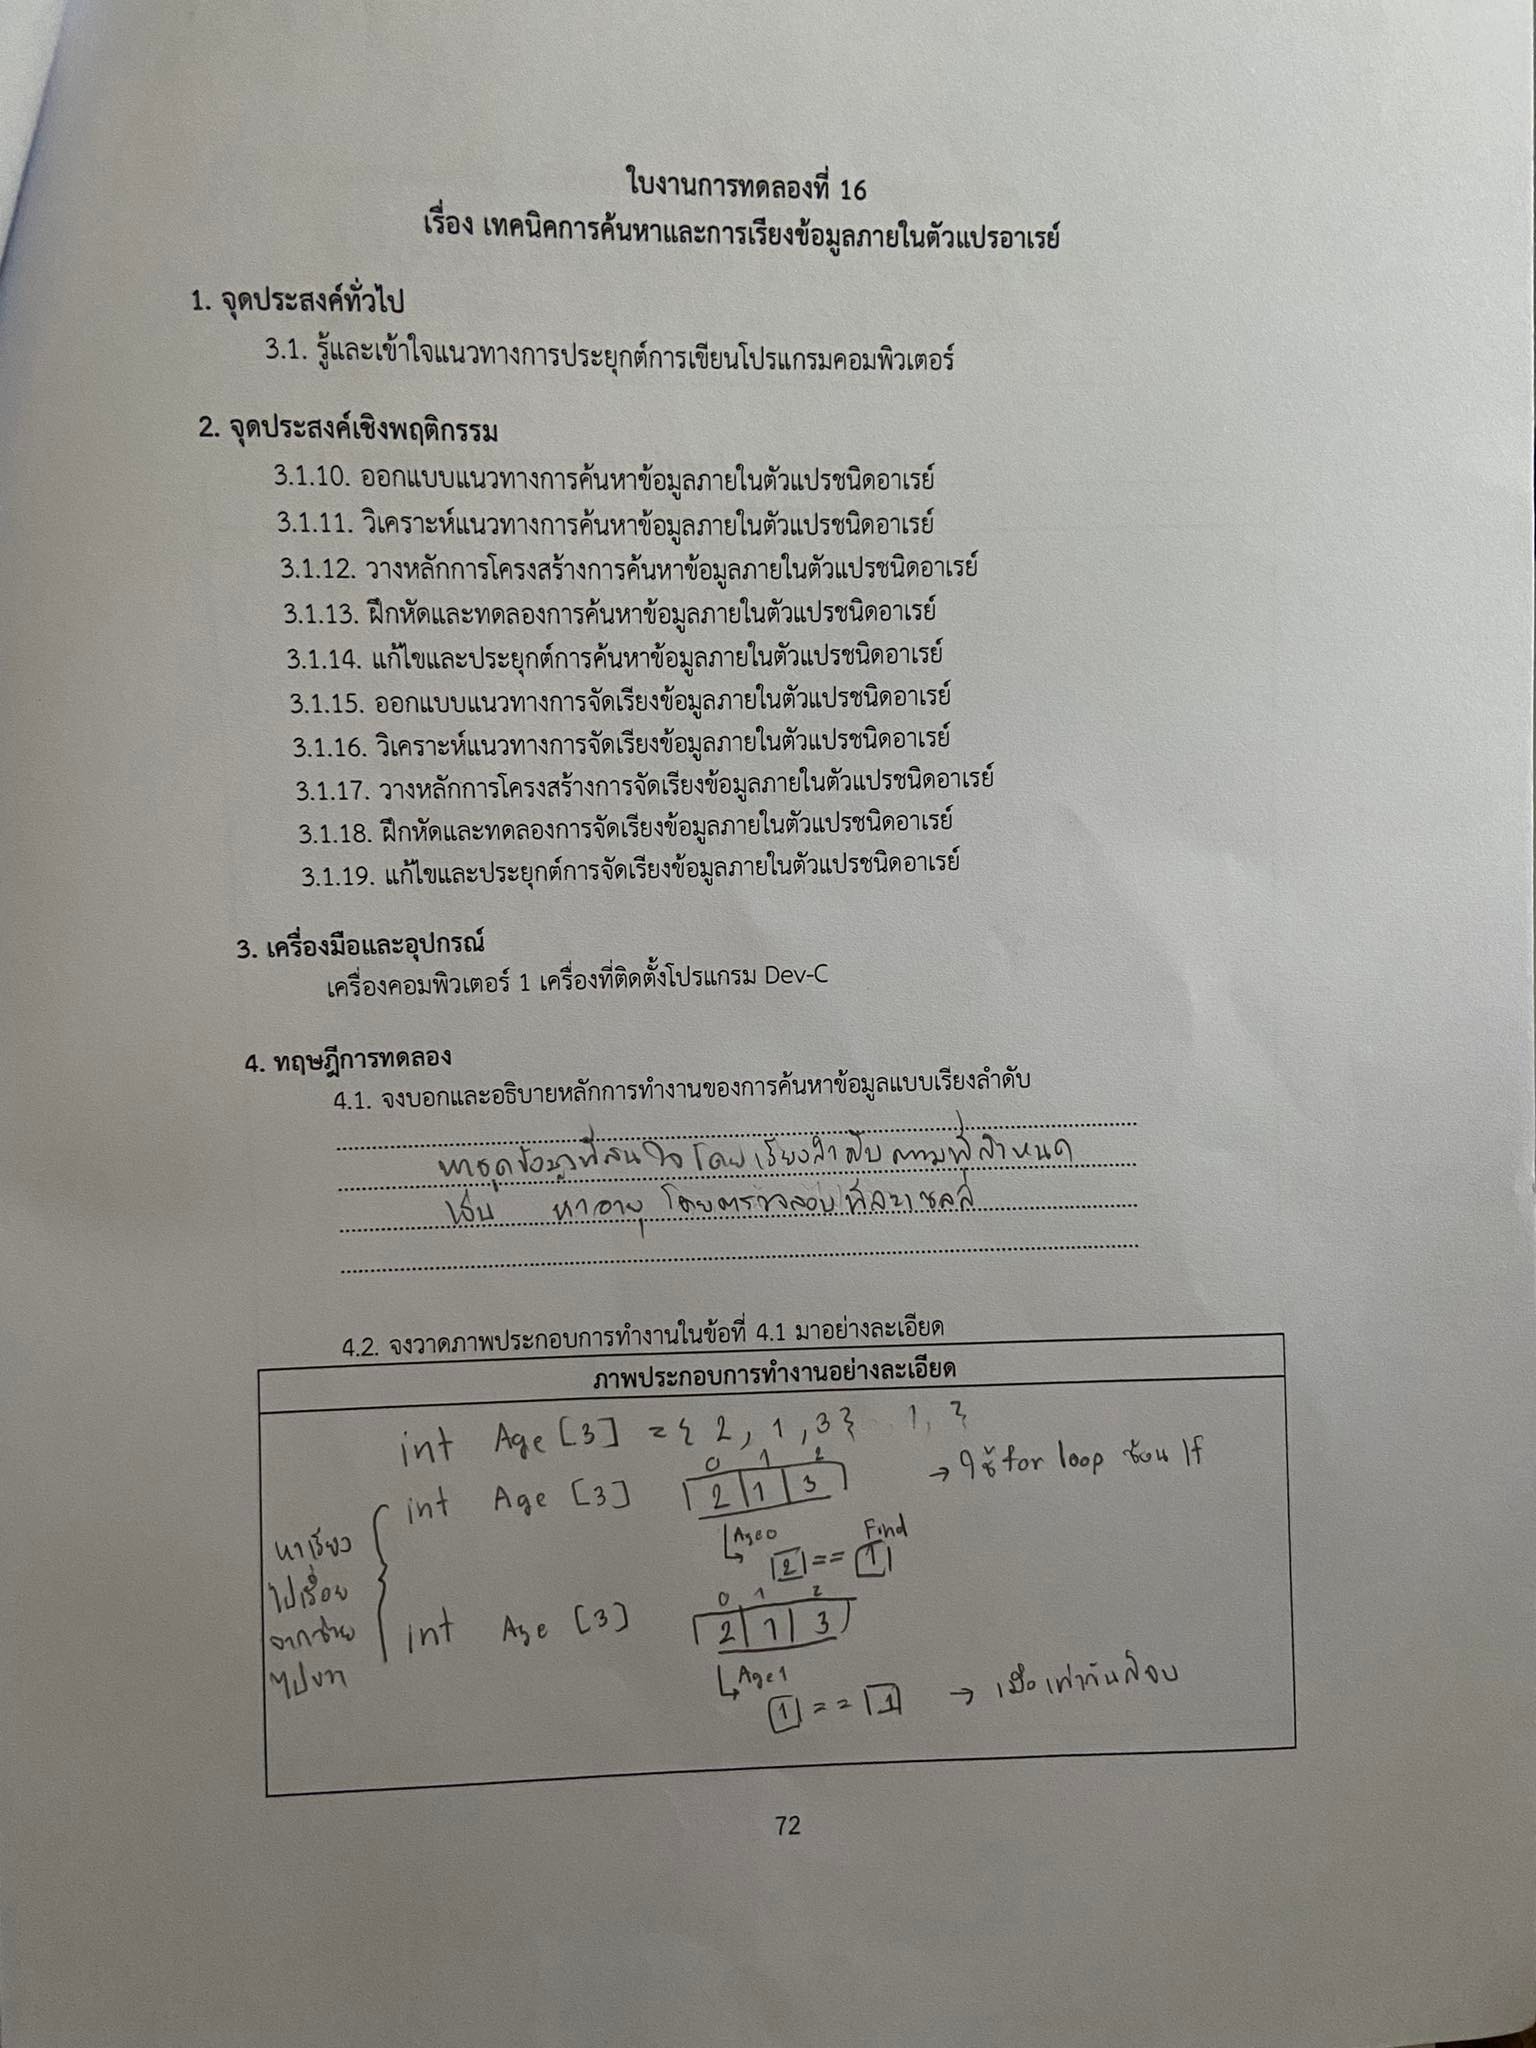 ใบงานการทดลองที่ 16
เรื่อง เทคนิคการค้นหาและการเรียงข้อมูลภายในตัวแปรอาเรย์
1. จุดประสงค์ทั่วไป
3.1. รู้และเข้าใจแนวทางการประยุกต์การเขียนโปรแกรมคอมพิวเตอร์
2. จุดประสงค์เชิงพฤติกรรม
3.1.10. ออกแบบแนวทางการค้นหาข้อมูลภายในตัวแปรชนิดอาเรย์
3.1.11. วิเคราะห์แนวทางการค้นหาข้อมูลภายในตัวแปรชนิดอาเรย์
3.1.12. วางหลักการโครงสร้างการค้นหาข้อมูลภายในตัวแปรชนิดอาเรย์
3.1.13. ฝึกหัดและทดลองการค้นหาข้อมูลภายในตัวแปรชนิดอาเรย์
3.1.14. แก้ไขและประยุกต์การค้นหาข้อมูลภายในตัวแปรชนิดอาเรย์
3.1.15. ออกแบบแนวทางการจัดเรียงข้อมูลภายในตัวแปรชนิดอาเรย์
3.1.16. วิเคราะห์แนวทางการจัดเรียงข้อมูลภายในตัวแปรชนิดอาเรย์
3.1.17. วางหลักการโครงสร้างการจัดเรียงข้อมูลภายในตัวแปรชนิดอาเรย์
3.1.18. ฝึกหัดและทดลองการจัดเรียงข้อมูลภายในตัวแปรชนิดอาเรย์
3.1.19. แก้ไขและประยุกต์การจัดเรียงข้อมูลภายในตัวแปรชนิดอาเรย์
3. เครื่องมือและอุปกรณ์
เครื่องคอมพิวเตอร์ 1 เครื่องที่ติดตั้งโปรแกรม Dev-C
4. ทฤษฎีการทดลอง
4.1. จงบอกและอธิบายหลักการทำงานของการค้นหาข้อมูลแบบเรียงลำดับ
หาชุดข้อมูลที่สนใจ โดยเรียงลำดับตามที่กำหนด
เช่น หาอายุ โดยตรวจสอบทีละเซลล์
4.2. จงวาดภาพประกอบการทำงานในข้อที่ 4.1 มาอย่างละเอียด
ภาพประกอบการทำงานอย่างละเอียด
int Age [3] = { 2, 1, 3 }
0 1 2
int Age [3] 2 1 3 → ใช้ for loop ซ้อน If
Age0 Find
2 == 1
หาเรียง
ไปเรื่อย
จากซ้าย
ไปขวา
0 1 2
int Age [3] 2 1 3
Age1
1 == 1 → เมื่อเท่ากันก็จบ
72